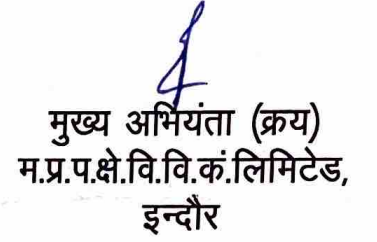 मुख्य अभियंता (क्रय)
म.प्र.प.क्षे.वि.वि.कं.लिमिटेड,
इन्दौर